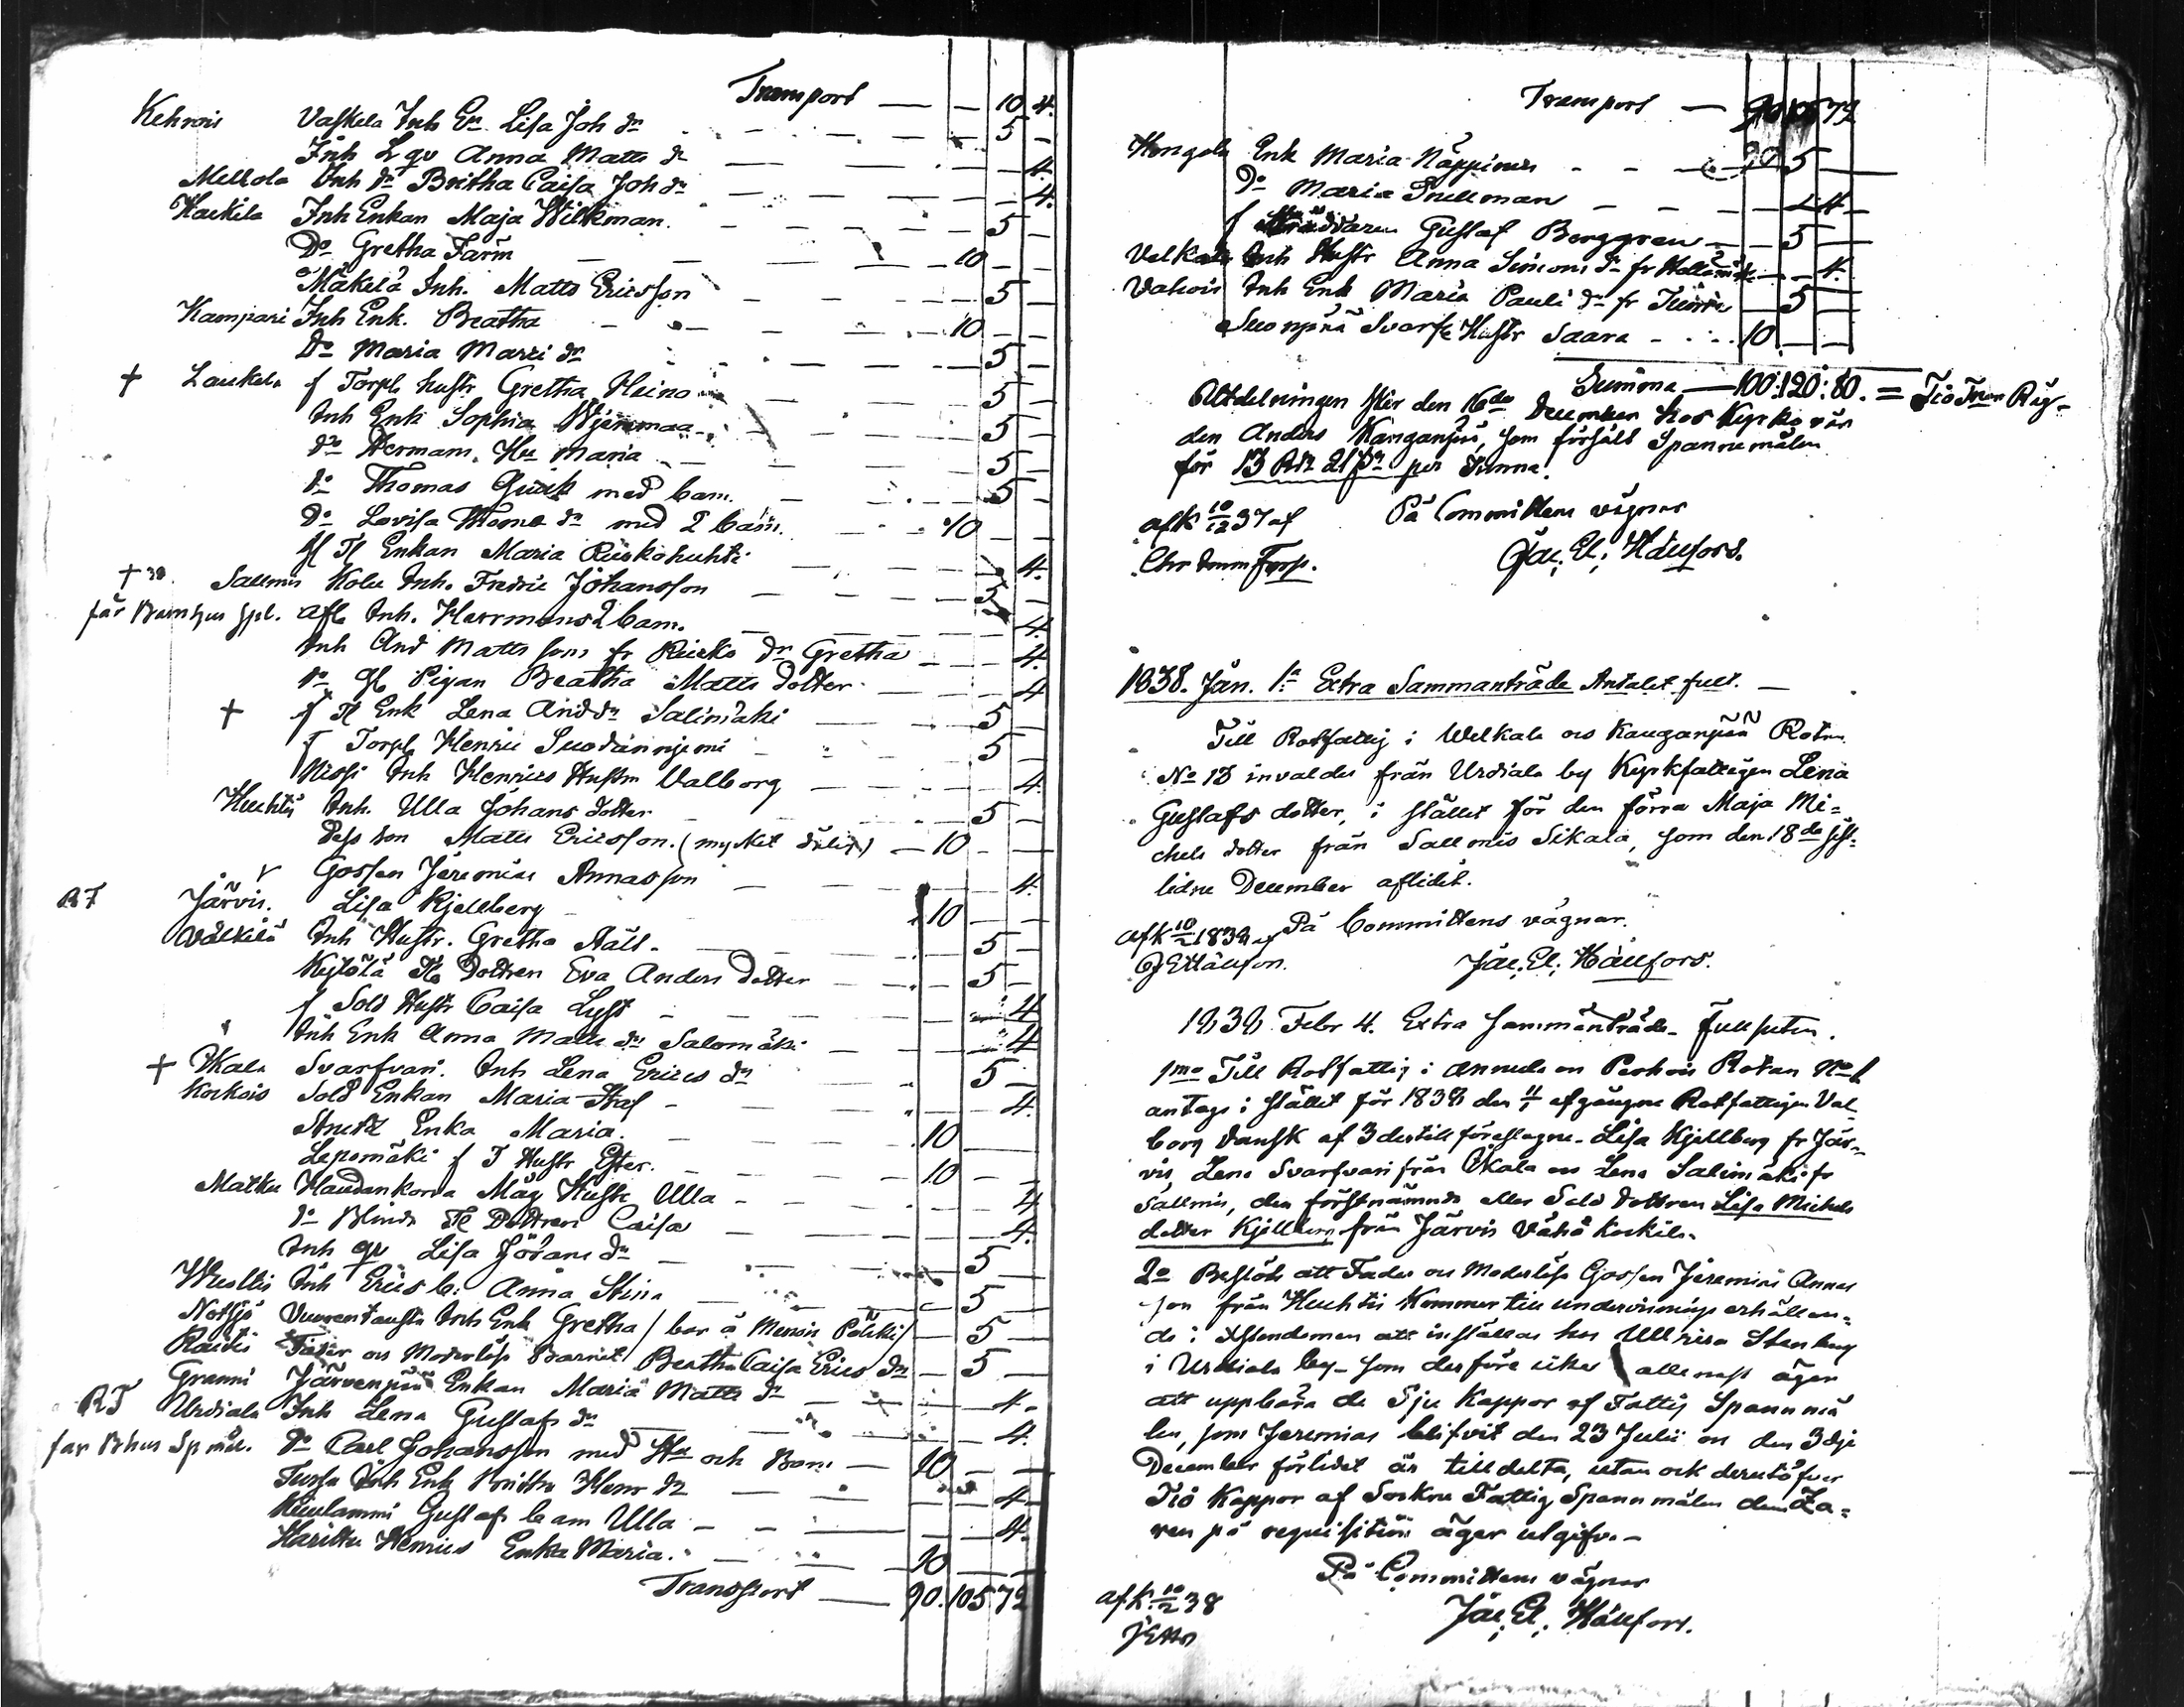 Transport — — 10 4.
Kehrois Vaskela Inh En Lisa Joh dr — 5 —
Inh L qv Anna Matts dr — — 4.
Mellola Inh dr Britha Caisa Joh dr — — 4.
Haukila Inh Enkan Maja Wilkman. — 5 —
Do Gretha Färm — 10 — —
Mäkelä Inh. Matts Ericsson — 5 —
Kampari Inh Enk. Beatha — 10 — —
Do Maria Marri dr — 5 —
† Laukela f Torpl hustr Gretha Heino — 5 —
Inh Enk Sophia — 5 —
do Hermans Hu Maria — 5 —
do Thomas med barn. — 5 —
do Lovisa Thoma dr med 2 barn. — 10 —
gl Tl Enkan Maria Ruskohuhti — — 4.
† 38. Salmis Kolu Inh. Fredric Johansson — 5 —
får Barnhus Spl. afl. Inh. Herrmans 2 barn. — — 4.
Inh And Matts sons fr Rusko dr Gretha — — 4.
do gl Pigan Beatha Matts dotter — — 4
† f Tl Enk Lena And dr Salimäki — 5 —
f Torpl Henric Suodänniemi — 5 —
Nissi Inh Henrics Hustru Valborg — — 4.
Huhtis Inh. Ulla Johans dotter — 5 —
Dess son Matts Ericsson. (mycket dålig) — 10 — —
v Gossen Jeremias Annasson — — 4.
RF Järvis. Lisa Kjellberg — 10 — —
Välkilä Inh Hustr. Gretha Ståll. — 5 —
Kylölä Tl Dottren Eva Anders dotter — 5 —
f Sold Hustr Caisa Lust — — 4
Inh Enk Anna Matts dr Salomäki — — 4
† Ukala Svarfvari. Inh Lena Erics dr — 5 —
Koskois Sold Enkan Maria Staf — — 4.
Enka Maria. — 10 —
Lepomäki f T Hustr Ester. — 10 — —
Matku Haudankorva Måg Hustr Ulla — — 4
do Blinda Tl Dottren Caisa — — 4.
Inh qv Lisa Jörans dr — 5 —
Wuoltis Inh Erics b: Anna Stina — 5 —
Notsjö Vuorentausta Inh Enk Gretha / bor å Menois / — 5 —
Rautis Fader och Moderlösa Barnet Beatha Caisa Erics dr — 5 —
Grammi Järvenpää Enkan Maria Matts dr — — 4.
RF Urdiala Inh Lena Gustafs dr — — 4.
får Bhus Spmål. Do Carl Johansson med Hu och Barn — 10 — —
Inh Enk Britha Henr dr — — 4
Kuulammi Gustafs barn Ulla — — 4.
Haritu Henrics Enka Maria. — 10 — —
Transport — 90.105.72
Transport — 90 105 72
Hongola Enk Maria Näppinen — 5 —
Do Maria Snellman — — 4 —
f Gustaf Berggren — 5 —
Velkala Inh Hustr Anna Simons dr fr — 4.
Vahois Inh Enk Maria Pauli dr fr — 5 —
Suonpää Svarfv Hustr Saara — 10 — —
Summa — 100:120:80. = Tio Tnor Råg.
Utdelningen sker den 16de December hos Kyrkovär
den Anders Kanganpää, som försålt Spannemålen
för 13 Rdr 21 per Tunna.
afk 10/12 37 af På Committens vägnar
Chr Jac. El. Hällfors.
1838. Jan. 1a Extra Sammanträde Antalet fullt. —
Till Rotfattig i Welkala och Kanganpää Rotan
No 13 invaldes från Urdiala by Kyrkfattigen Lena
Gustafs dotter, i stället för den förra Maja Mi=
chels dotter från Salmis Sikala, som den 18de sist=
lidne December aflidit.
På Committens vägnar.
afk 10/2 1838 af
JEHällfors. Jac. El. Hällfors.
1838 Febr 4. Extra Sammanträde — fullsuten.
1mo Till Rotfattig i Annula och Peshois Rotan No 1
antogs i stället för 1838 den 11/1 afgångne Rotfattigen Val
borg Dansk af 3 dertill föreslagne — Lisa Kjellberg fr Jär=
vis, Lena Svarfvari från Ukala och Lena Salimäki fr
Salmis, den förstnämnde eller Sold dottren Lisa Michels
dotter Kjellberg från Järvis Vähä Keskilä.
2o Beslöts att Fader och Moderlösa Gossen Jeremias Annas
son från Huhtis kommer till undervisnings erhållan=
de i Christendomen att inställas hos Ullrica Stenberg
i Urdiala by — som derföre icke allenast äger
att uppbära de Sju Kappor af Fattig Spannmå
len, som Jeremias blifvit den 23 Julii och den 3dje
December förlidet år tilldelta, utan ock derutöfver
Tio Kappor af Sockne Fattig Spannmålen dem La=
ven på requisition äger utgifva. —
På Committens vägnar
afk. 10/2 38 Jac. El. Hällfors.
JEHrs